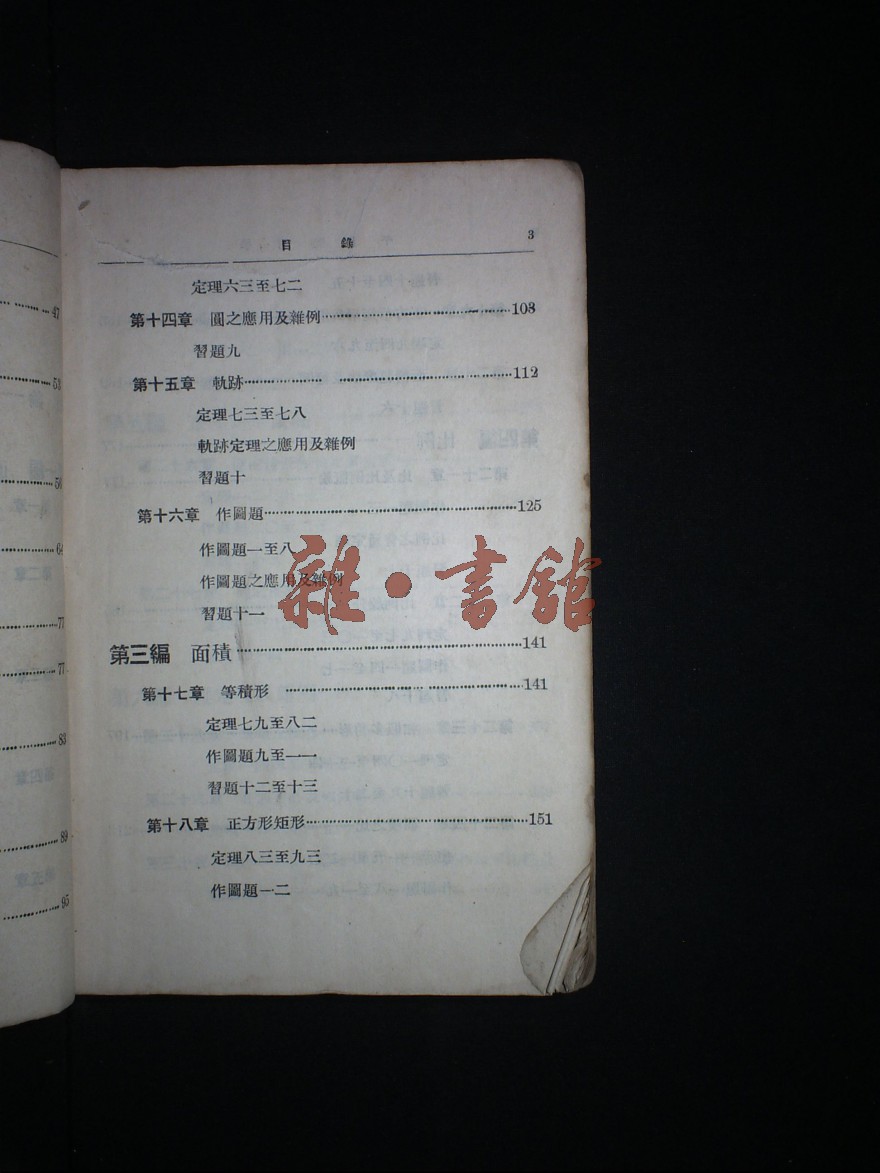 目錄 3
定理六三至七二
第十四章 圓之應用及雜例 108
習題九
第十五章 軌跡 112
定理七三至七八
軌跡定理之應用及雜例
習題十
第十六章 作圖題 125
作圖題一至八
作圖題之應用及雜例
習題十一
第三編 面積 141
第十七章 等積形 141
定理七九至八二
作圖題九至一一
習題十二至十三
第十八章 正方形矩形 151
定理八三至九三
作圖題一二
雜·書館
47
53
56
64
77
77
83
89
95